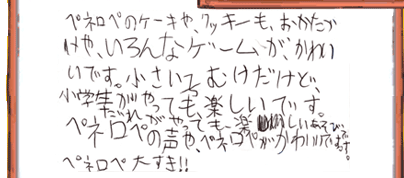 ペネロペのケーキや、クッキーも、おかたづ
けや、いろんなゲームが、かわい
いです。小さい子むけだけど、
小学生がやっても、楽しいです。
だれがやっても、楽しいあそびです。
ペネロペの声や、ペネロペがかわいいです。
ペネロペ大すき!!